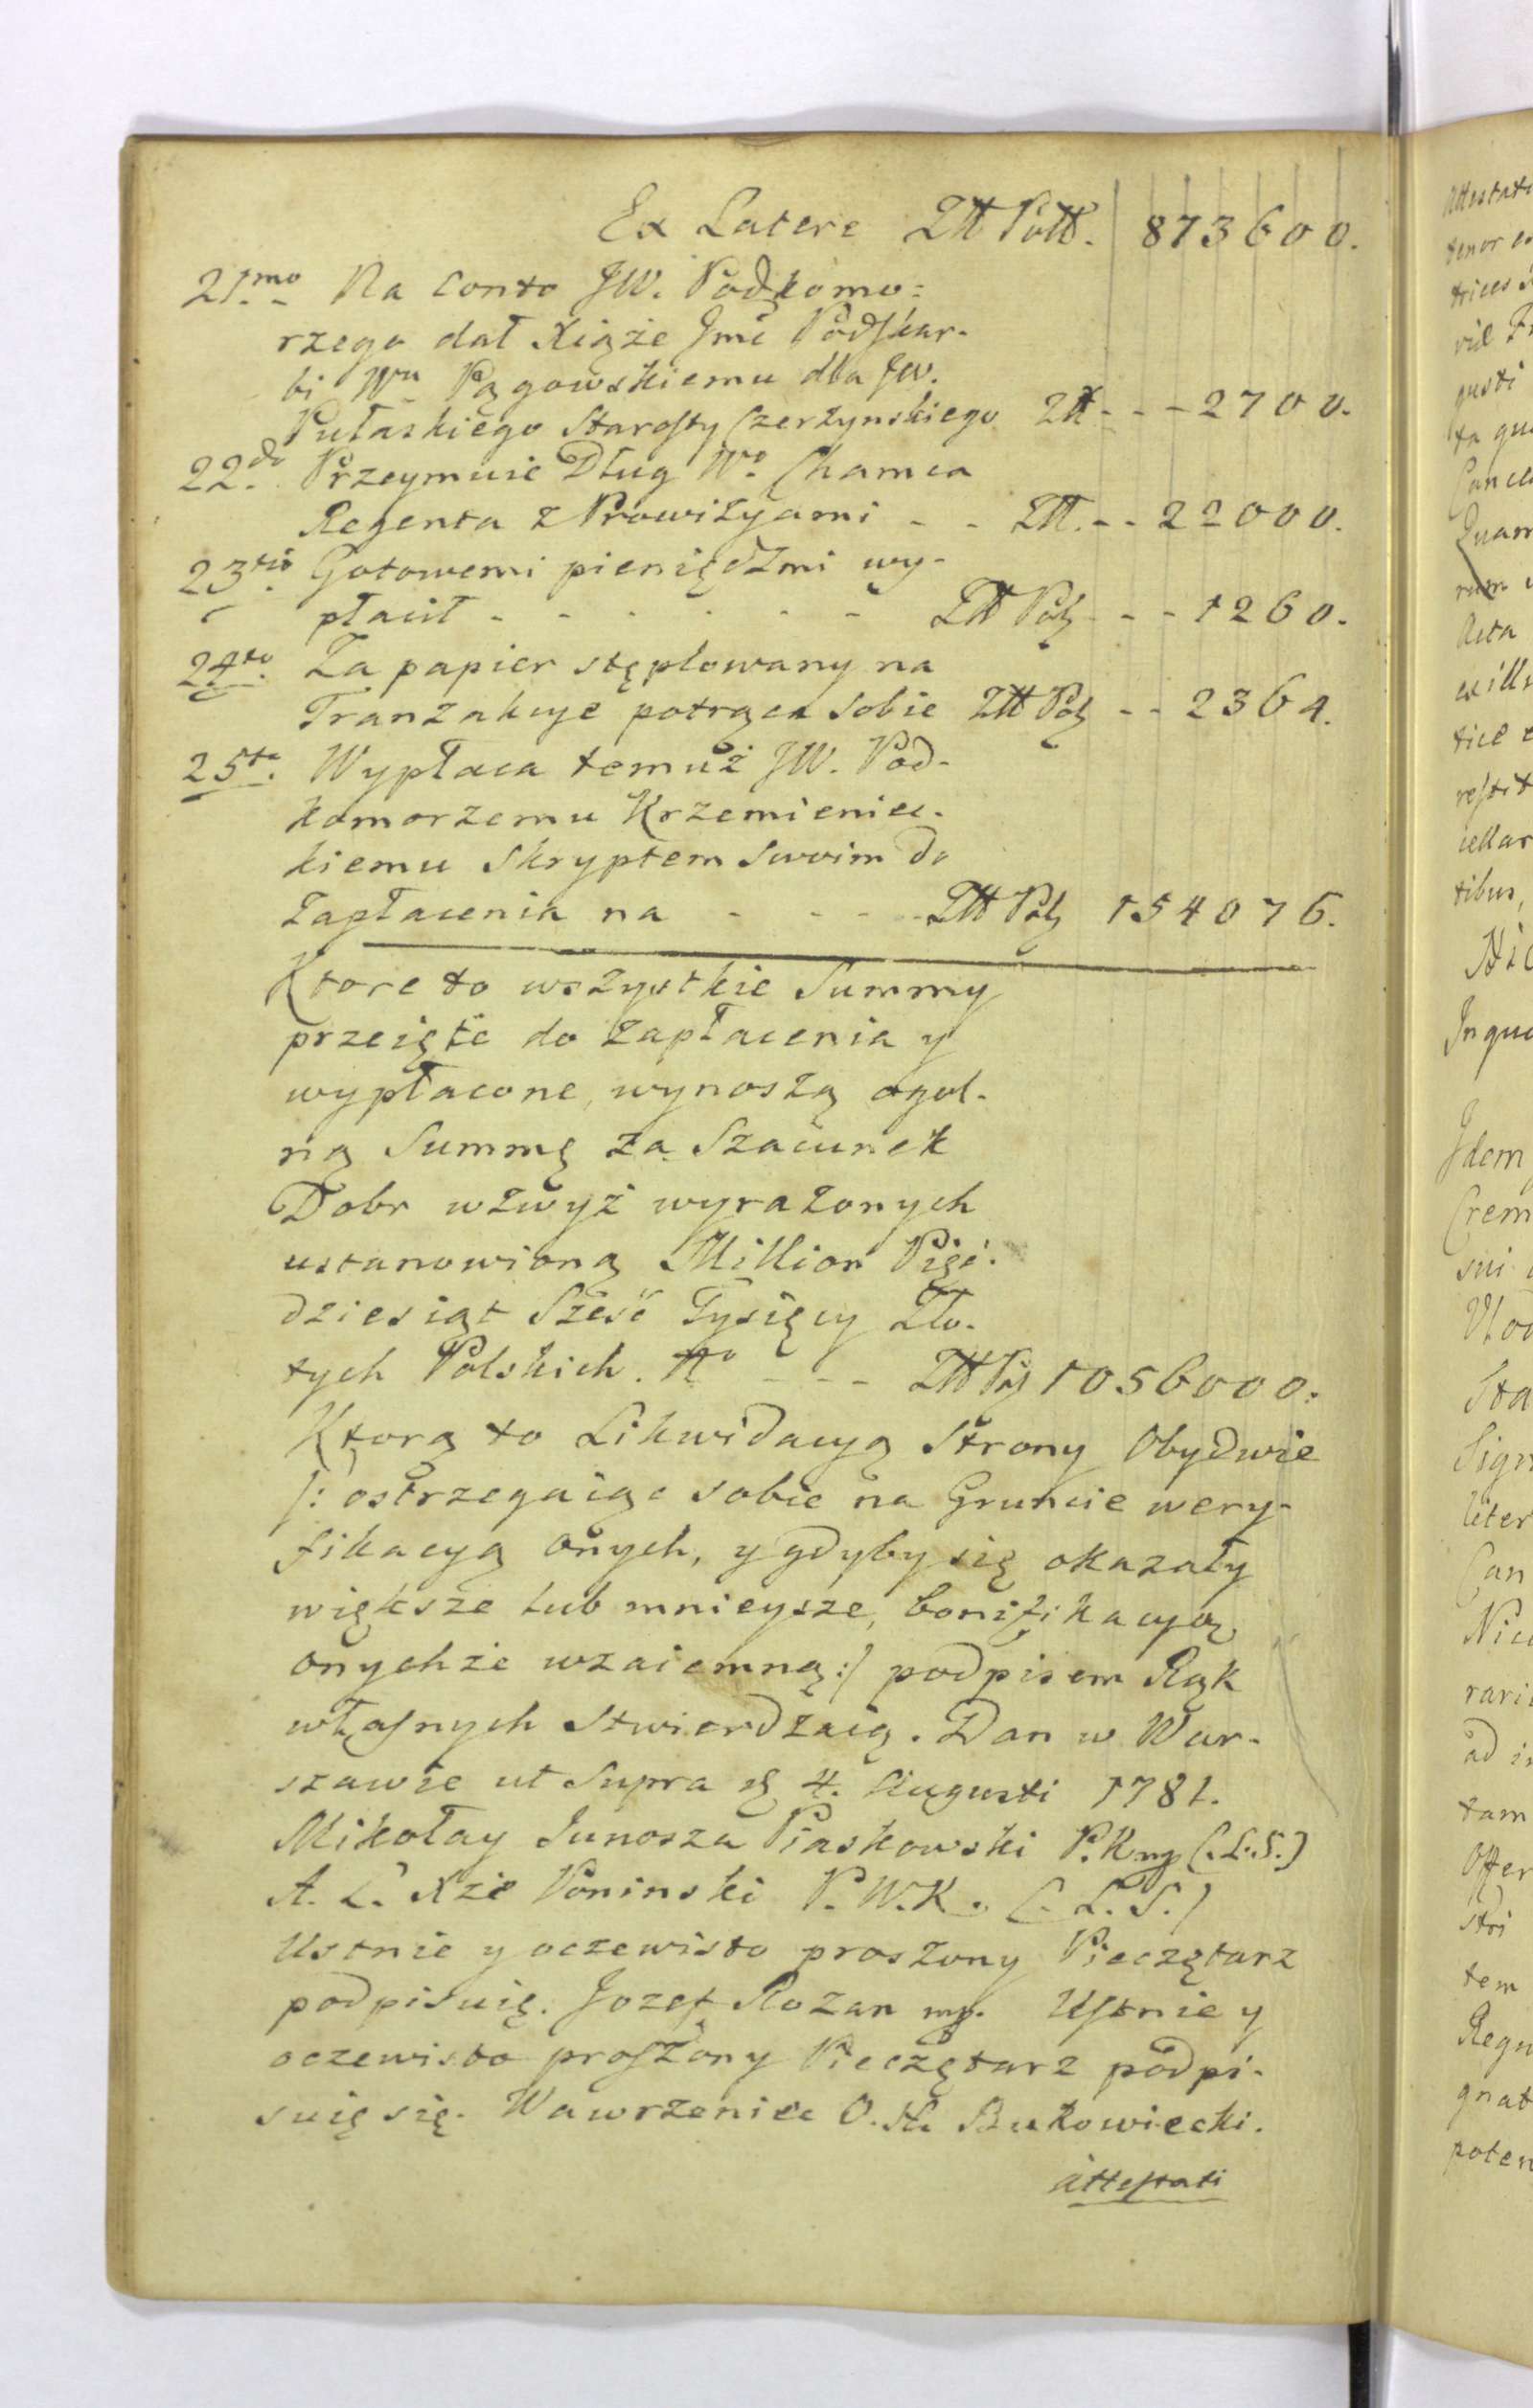 Ex Latere Złł Polł. 873600.
21.mo Na Conto JW. Podkomo=
rzego dał Xiąże Jmć Podskar-
bi Wu Pągowskiemu dla JW.
Pułaskiego Starosty Czerżynskiego Złł - - - 2700.
22.do Przeymuie Dług Wo. Chamca
Regenta z Prowizyami - - Złł. - - 22000.
23.tio Gotowemi pieniędzmi wy-
płacił - - - - - - Złł Pol - - - 1260.
24.to Za papier stęplowany na
Tranzakcye potrąca sobie Złł Pol - - 2364.
25.to Wypłaca temuż JW. Pod-
komorzemu Krzemieniec-
kiemu Skryptem Swoim do
Zapłacenia na - - - - Złł Pol 154076.
Ktore to wszystkie Summy
przeięte do zapłacenia y
wypłacone, wynoszą ogol-
ną Summę za Szacunek
Dobr wzwyż wyrażonych
ustanowioną Million Pięć-
dziesiąt Sześć Tysięcy Zło-
tych Polskich. No - - - Złł Pol 1056000.
Ktorą to Likwidacyą Strony Obydwie
/: ostrzegaiąc sobie na Gruncie wery-
fikacyą onych, y gdyby się okazały
większe lub mnieysze, bonifikacyą
onychże wzaiemną :/ podpisem Rąk
własnych stwierdzaią. Dan w War-
szawie ut Supra d 4. Augusti 1781.
Mikołay Junosza Piaskowski P.K mp (.L.S.)
A. Ł. Xże Poninski P.W.K. (. L. S.)
Ustnie y oczewisto proszony Pieczętarz
podpisuię. Jozef Rozan mp. Ustnie y
oczewisto proszony Pieczętarz podpi-
suię się. Wawrzeniec O. St. Bukowiecki.
Attestati